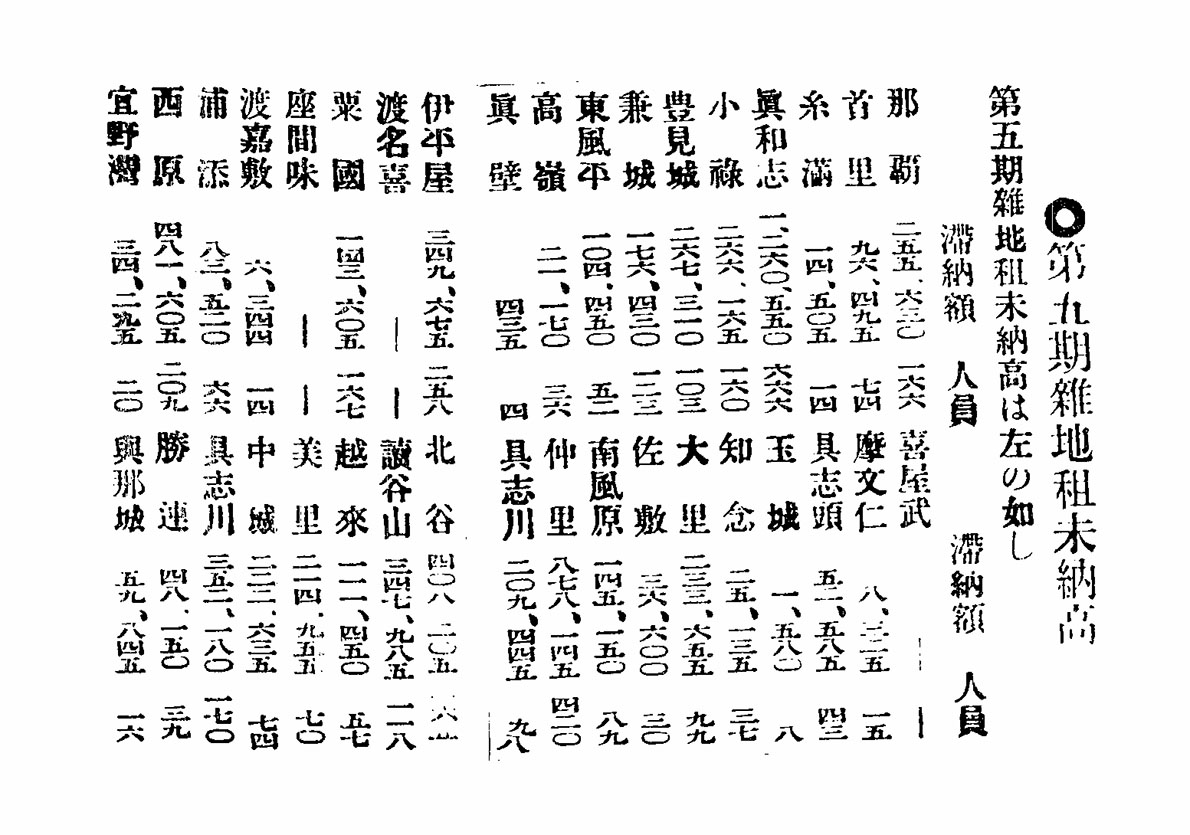 ◉第九期雑地租未納高
第五期雑地租未納高は左の如し
滞納額　人員　滞納額　人員
那覇　二五五、六三〇　一六六　喜屋武　｜　｜
首里　九六、四九五　七四　摩文仁　八、三二五　一五
糸満　一四、五〇五　一四　具志頭　五二、五八五　四三
眞和志　一、二六〇、五五〇　六六六　玉城　一、五八〇　八
小祿　二六六、一六五　一六〇　知念　二五、一三五　三七
豊見城　二六七、三一〇　一〇三　大里　二三三、六五五　九九
兼城　一七六、四三〇　一二三　佐敷　三六、六〇〇　三〇
東風平　一〇四、四五〇　五二　南風原　一四五、一五〇　八九
高嶺　二一、一七〇　三六　仲里　八七八、一四五　四二〇
眞壁　四三五　四　具志川　二〇九、四四五　九八
伊平屋　三四九、六七五　二五八　北谷　四〇八　二〇五
渡名喜　｜　｜　讀谷山　三四七、九八五　一一八
粟國　一四三、六〇五　一六七　越來　一一一、四五〇　五七
座間味　｜　｜　美里　二一四、九五五　七〇
渡嘉敷　六、三四四　一四　中城　二二二、六三五　七四
浦添　八三、五二〇　六六　具志川　三五二、一八〇　一七〇
西原　四八一、六〇五　二〇九　勝連　四八、一五〇　三九
宜野灣　三四、二九五　二〇　與那城　五九、八四五　一六